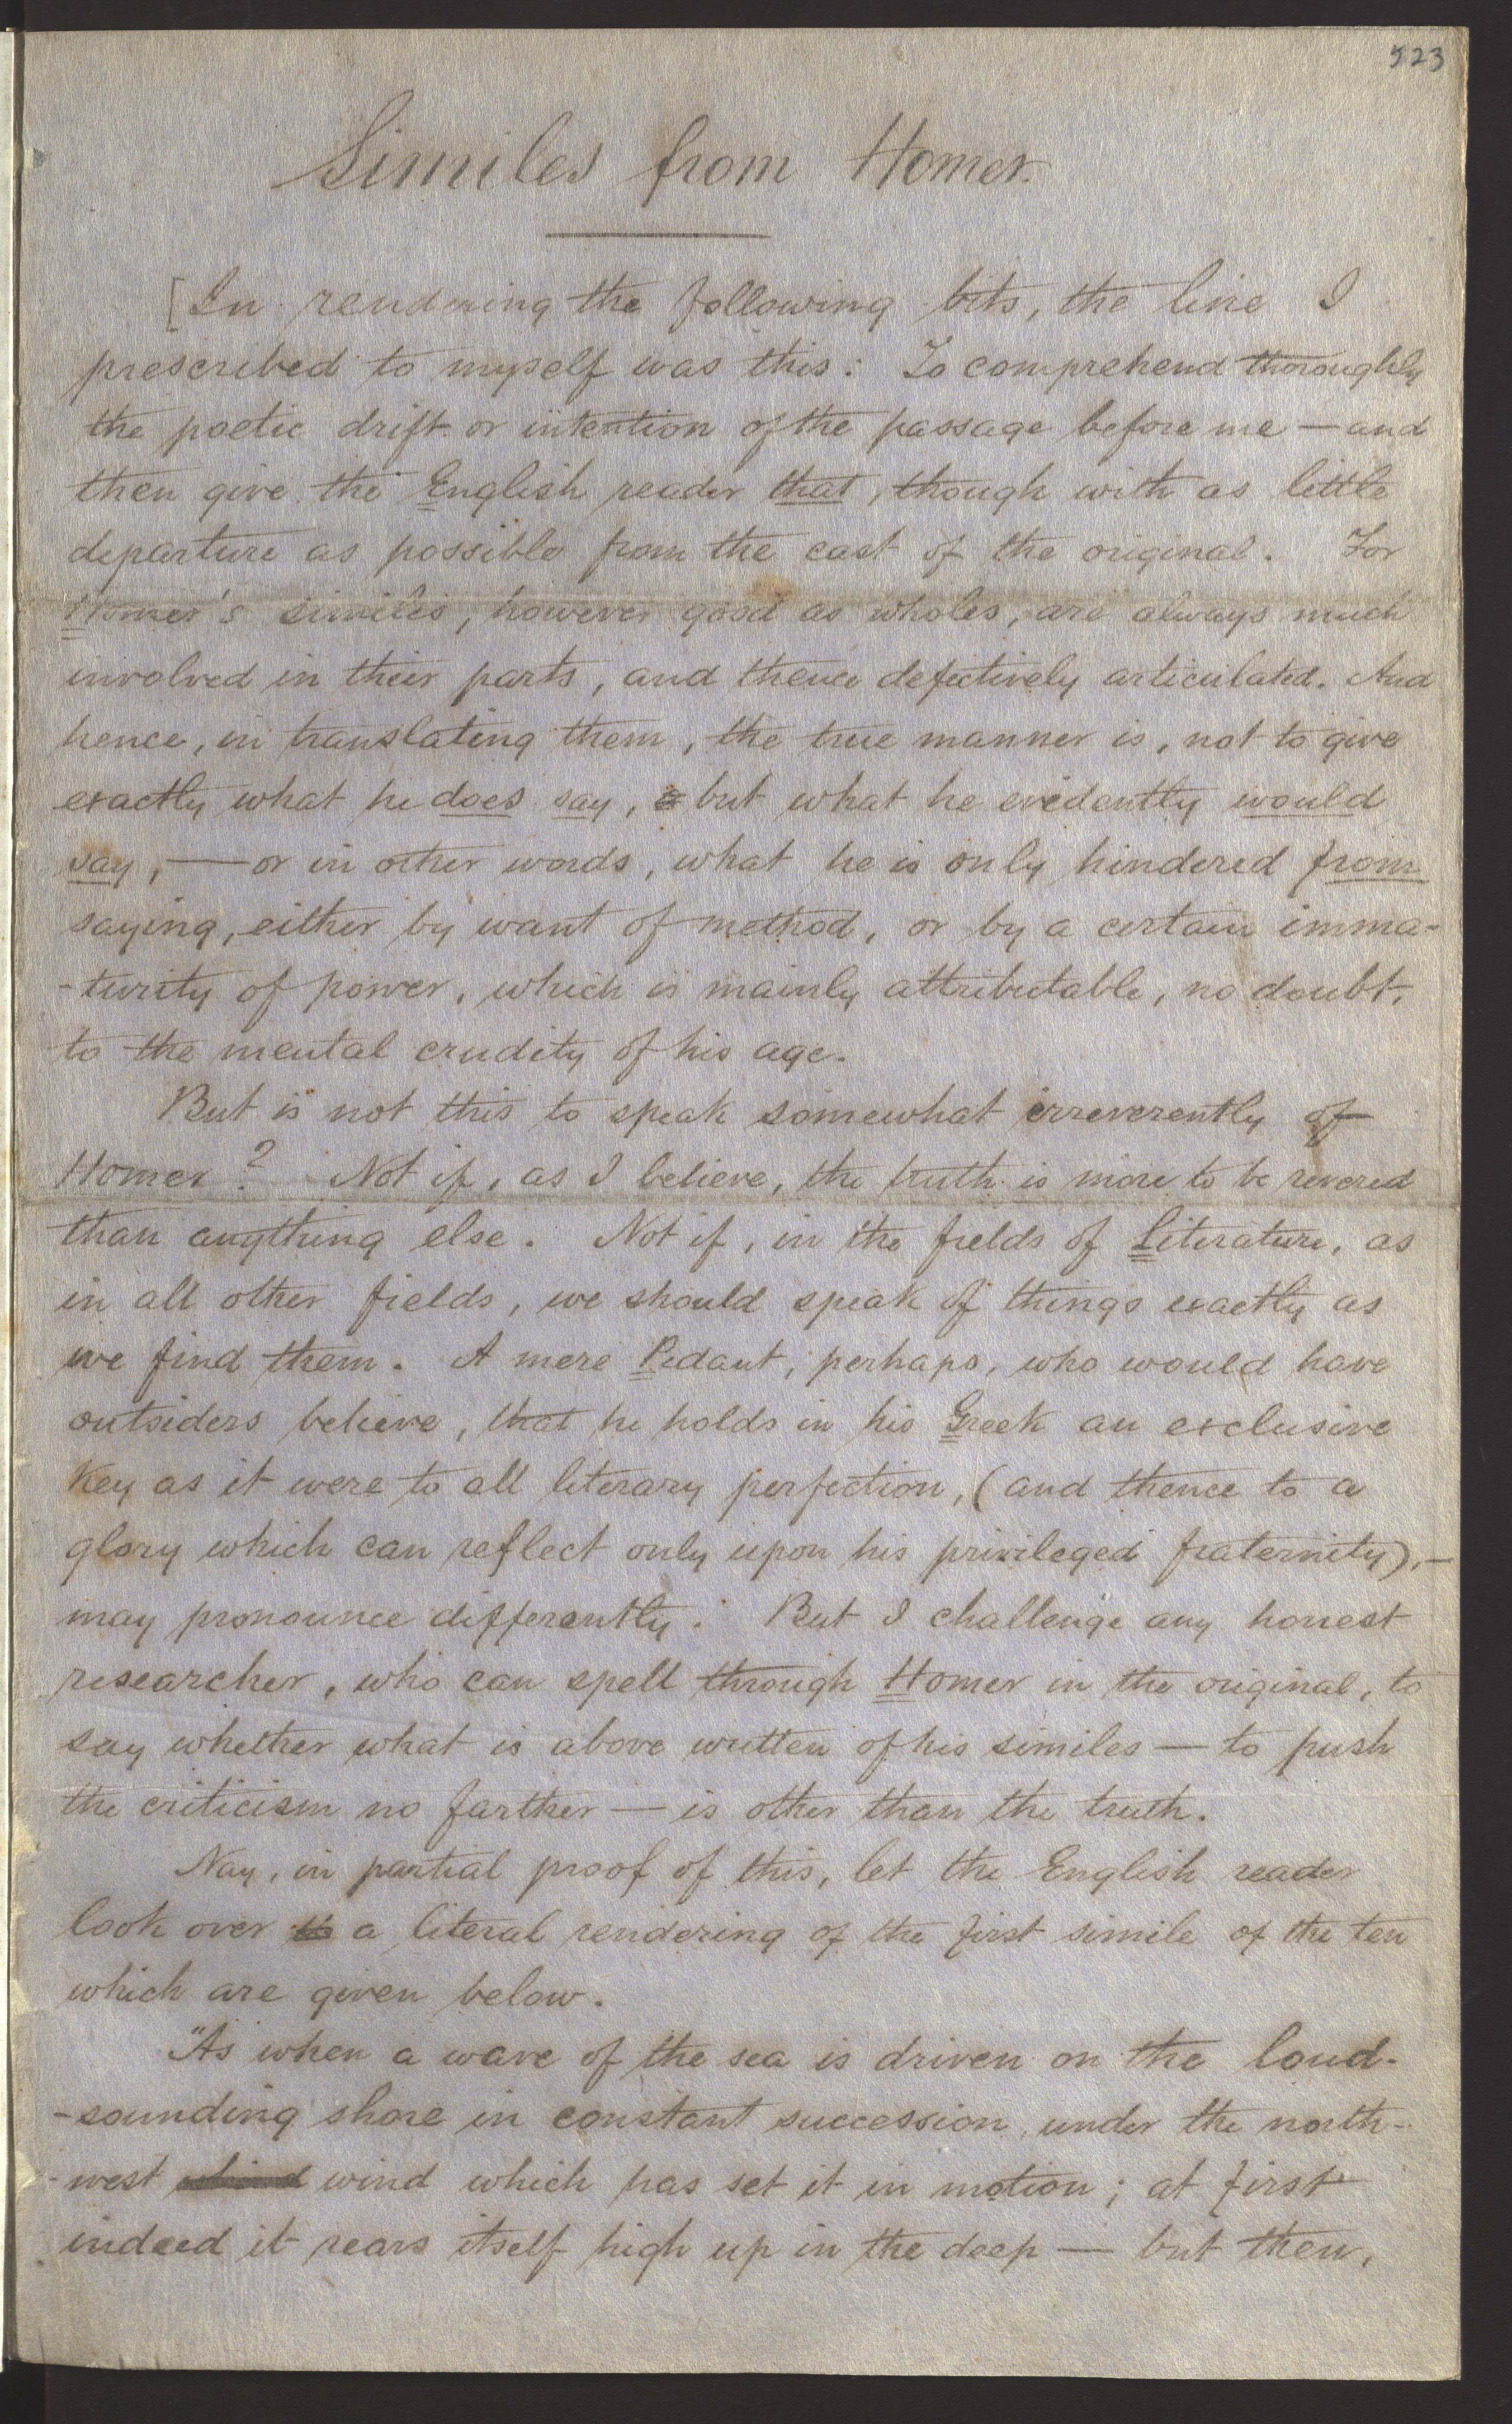 523
Similes from Homer.
[In rendering the following bits, the line I
prescribed to myself was this: To comprehend thoroughly
the poetic drift or intention of the passage before me — and
then give the English reader that, though with as little
departure as possible from the cast of the original. For
Homer's similes, however good as wholes, are always much
involved in their parts, and thence defectively articulated. And
hence, in translating them, the true manner is, not to give
exactly what he does say, but what he evidently would
say, — or in other words, what he is only hindered from
saying, either by want of method, or by a certain imma-
-turity of power, which is mainly attributable, no doubt,
to the mental crudity of his age.
But is not this to speak somewhat irreverently of
Homer? Not if, as I believe, the truth is more to be revered
than anything else. Not if, in the fields of Literature, as
in all other fields, we should speak of things exactly as
we find them. A mere Pedant, perhaps, who would have
outsiders believe, that he holds in his Greek an exclusive
key as it were to all literary perfection, (and thence to a
glory which can reflect only upon his privileged fraternity), —
may pronounce differently. But I challenge any honest
researcher, who can spell through Homer in the original, to
say whether what is above written of his similes — to push
the criticism no farther — is other than the truth.
Nay, in partial proof of this, let the English reader
look over a literal rendering of the first simile of the ten
which are given below.
"As when a wave of the sea is driven on the loud-
-sounding shore in constant succession, under the north-
-west wind which has set it in motion; at first
indeed it rears itself high up in the deep — but then,